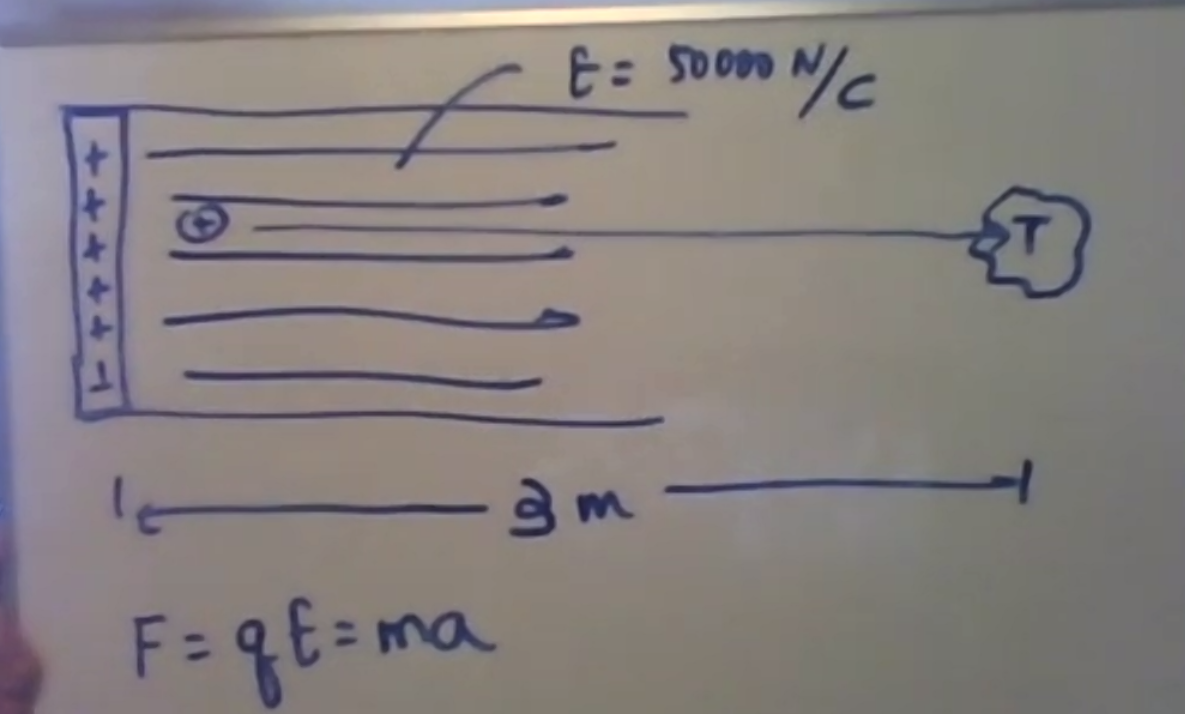 E = 50000 N/C
+
+
+
+
+
+
T
3 m
F = qE = ma